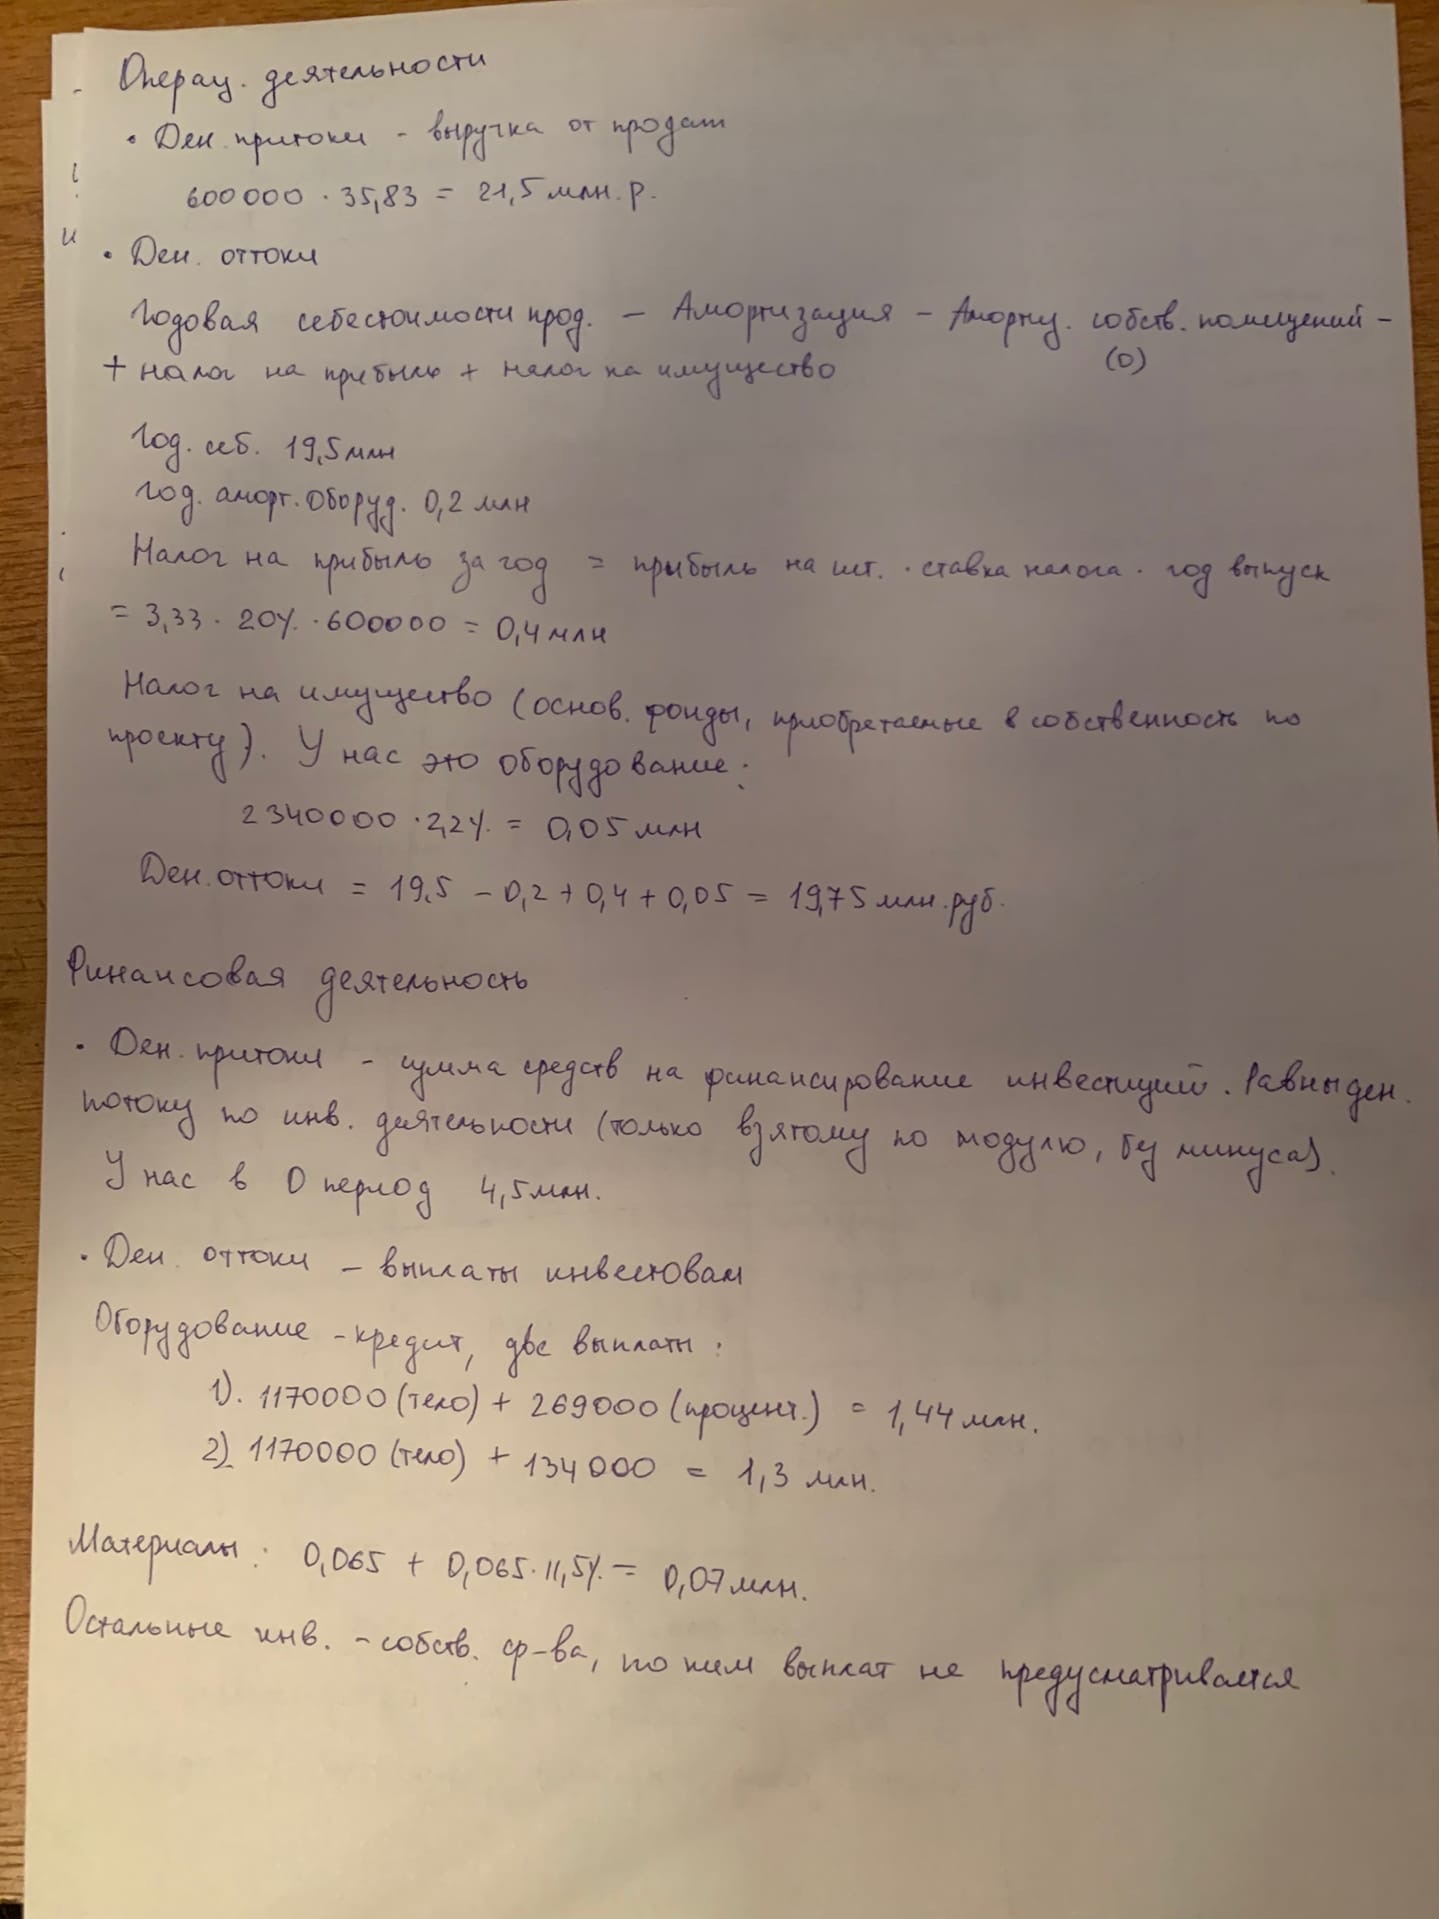 Операц. деятельности
• Ден. притоки - выручка от продаж
600000 · 35,83 = 21,5 млн. р.
• Ден. оттоки
Годовая себестоимости прод. – Амортизация – Амортиз. собств. помещений –
(0)
+ налог на прибыль + налог на имущество
Год. себ. 19,5 млн
Год. аморт. оборуд. 0,2 млн
Налог на прибыль за год = прибыль на шт. · ставка налога · год выпуск
= 3,33 · 20% · 600000 = 0,4 млн
Налог на имущество (основ. фонды, приобретаемые в собственность по
проекту). У нас это оборудование:
2340000 · 2,2% = 0,05 млн
Ден. оттоки = 19,5 – 0,2 + 0,4 + 0,05 = 19,75 млн. руб.
Финансовая деятельность
• Ден. притоки - сумма средств на финансирование инвестиций. Равны ден.
потоку по инв. деятельности (только взятому по модулю, без минуса).
У нас в 0 период 4,5 млн.
• Ден. оттоки – выплаты инвестовам
Оборудование - кредит, две выплаты:
1). 1170000 (тело) + 269000 (процент.) = 1,44 млн.
2). 1170000 (тело) + 134000 = 1,3 млн.
Материалы: 0,065 + 0,065 · 11,5% = 0,07 млн.
Остальные инв. - собств. ср-ва, по ним выплат не предусматривается